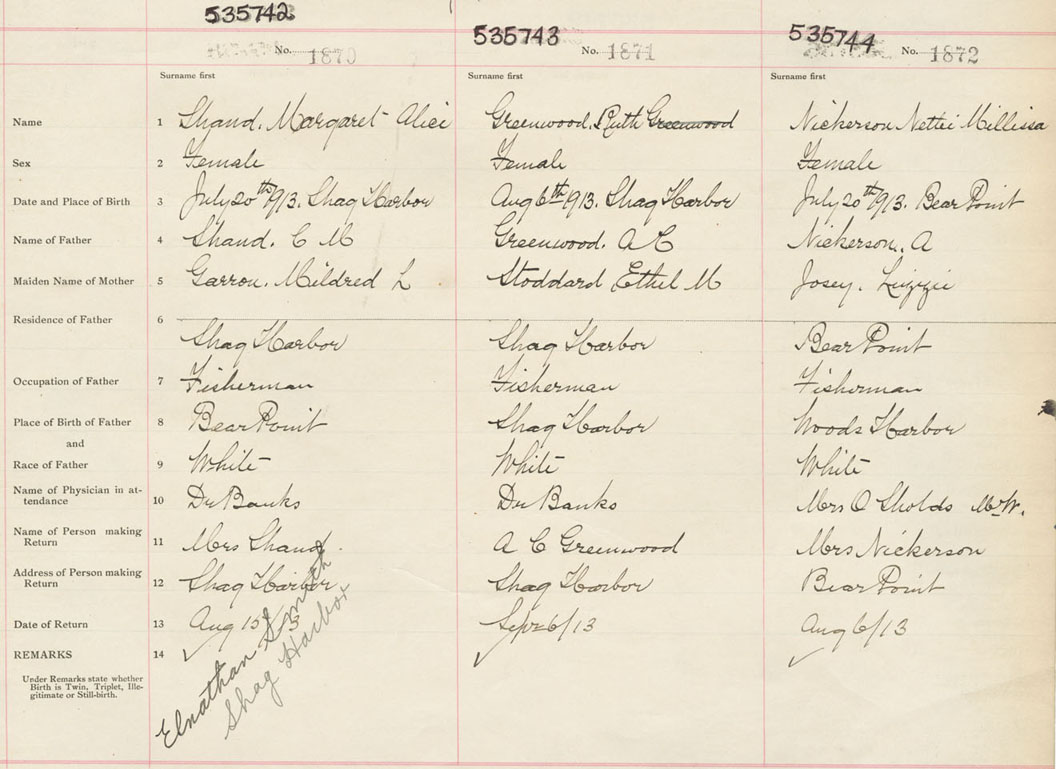 535742 535743 535744
No. 1870 No. 1871 No. 1872
Surname first Surname first Surname first
Name 1 Shand. Margaret Alice Greenwood. Ruth Greenwood Nickerson Nettie Millissa
Sex 2 Female Female Female
Date and Place of Birth 3 July 20th/913. Shag Harbor Aug 6th/913. Shag Harbor July 20th/913. Bear Point
Name of Father 4 Shand. C M Greenwood. A C Nickerson. A
Maiden Name of Mother 5 Garron. Mildred L Stoddard Ethel M Josey. Lizzie
Residence of Father 6
Shag Harbor Shag Harbor Bear Point
Occupation of Father 7 Fisherman Fisherman Fisherman
Place of Birth of Father 8 Bear Point Shag Harbor Woods Harbor
and
Race of Father 9 White White White
Name of Physician in at-
tendance 10 Dr Banks Dr Banks Mrs O Sholds MW.
Name of Person making
Return 11 Mrs Shand. A C Greenwood Mrs Nickerson
Address of Person making
Return 12 Shag Harbor Shag Harbor Bear Point
Date of Return 13 Aug 15/13 Sept 6/13 Aug 6/13
REMARKS 14
Under Remarks state whether
Birth is Twin, Triplet, Ille-
gitimate or Still-birth.
Elnathan Smith
Shag Harbor